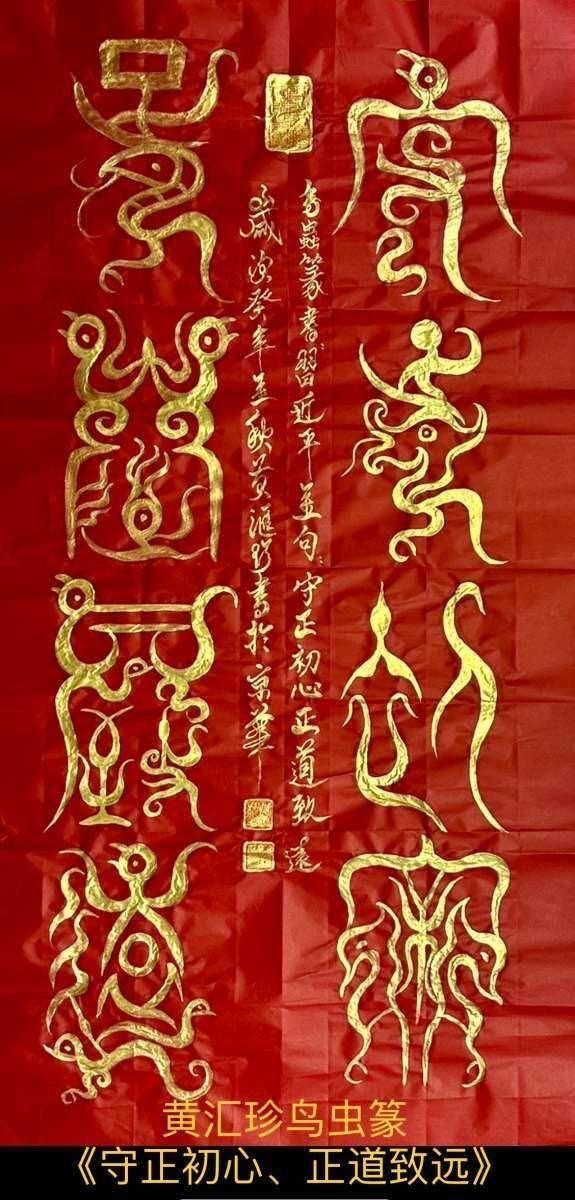 守正初心
鳥蟲篆書:習近平金句:守正初心正道致遠
歲次癸卯孟秋黄滙珍書於京華
正道致遠
黄汇珍鸟虫篆
《守正初心、正道致远》